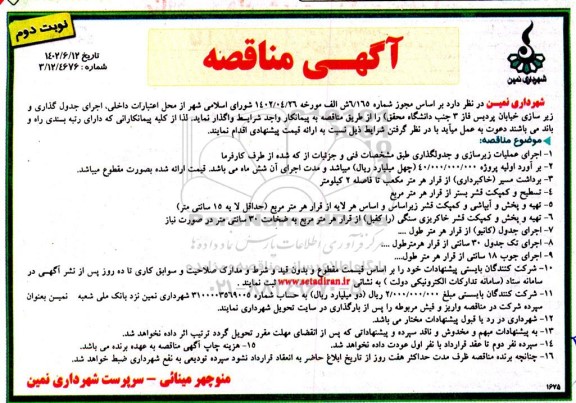 نوبت دوم
آگهی مناقصه
تاریخ ۱۴۰۲/۶/۱۲
شماره : ۳/۱۲/۴۶۷۶
شهرداری نمین
شهرداری نمین در نظر دارد بر اساس مجوز شماره ۷/۱۶۵ش الف مورخه ۱۴۰۲/۰۴/۲۶ شورای اسلامی شهر از محل اعتبارات داخلی، اجرای جدول گذاری و
زیر سازی خیابان پردیس فاز ۳ جنب دانشگاه محقق) را از طریق مناقصه به پیمانکار واجد شرایط واگذار نماید. لذا از کلیه پیمانکارانی که دارای رتبه بندی راه و
باند می باشند دعوت به عمل میآید با در نظر گرفتن شرایط ذیل نسبت به ارائه قیمت پیشنهادی اقدام نمایند.
موضوع مناقصه:
۱- اجرای عملیات زیرسازی و جدولگذاری طبق مشخصات فنی و جزئیات از که شده از طرف کارفرما
۲- بر آورد اولیه پروژه ۴۰/۰۰۰/۰۰۰/۰۰۰ (چهل میلیارد ریال) میباشد و مدت اجرای آن شش ماه می باشد. قیمت ارائه شده بصورت مقطوع میباشد.
۳- برداشت مسیر (خاکبرداری) از قرار هر متر مکعب تا فاصله ۲ کیلومتر
۴- تسطیح و کمپکت قشر بستر از قرار هر متر مربع
۵- تهیه و پخش و آبپاشی و کمپکت قشر زیراساس و اساس هر لایه از قرار هر متر مربع (حداقل لا یه ۱۵ سانتی متر)
۶- تهیه و پخش و کمپکت قشر خاکریزی سنگی (را کفیل) از قرار هر متر مربع به ضخامت ۳۰ سانتی متر در صورت نیاز
۷- اجرای جدول (کانیو) از قرار هر متر طول ....
۸- اجرای تک جدول ۳۰ سانتی از قرار هرمترطول ....
۹- اجرای جوب ۱۸ سانتی از قرار هر متر طول....
۱۰- شرکت کنندگان بایستی پیشنهادات خود را بر اساس قیمت مقطوع و بدون قید و شرط و مدارک صلاحیت و سوابق کاری تا ده روز پس از نشر آگهی در
سامانه ستاد (سامانه تدارکات الکترونیکی دولت ) به نشانی www.setadiran.ir ثبت نمایند.
۱۱- شرکت کنندگان بایستی مبلغ ۲/۰۰۰/۰۰۰/۰۰۰ ریال (دو میلیارد ریال) به حساب شماره ۳۱۰۰۰۰۳۵۶۹۰۰۵ شهرداری نمین نزد بانک ملی شعبه نمین بعنوان
سپرده شرکت در مناقصه واریز و فیش مربوطه را پس از بارگذاری در سایت تحویل شهرداری نمایند.
۱۲- شهرداری در رد یا قبول پیشنهادات مختار می باشد.
۱۳- به پیشنهادات مبهم و مخدوش و ناقد سپرده و پیشنهاداتی که پس از انقضای مهلت مقرر تحویل گردد ترتیب اثر داده نخواهد شد.
۱۴- سپرده نفر دوم تا عقد قرارداد با نفر اول عودت داده نخواهد شد. ۱۵- هزینه چاپ آگهی مناقصه به عهده برنده می باشد.
۱۶- چنانچه برنده مناقصه ظرف مدت حداکثر هفت روز از تاریخ ابلاغ حاضر به انعقاد قرارداد نشود سپرده تودیعی به نفع شهرداری ضبط خواهد شد.
منوچهر مینائی – سرپرست شهرداری نمین
۱۶۷۵